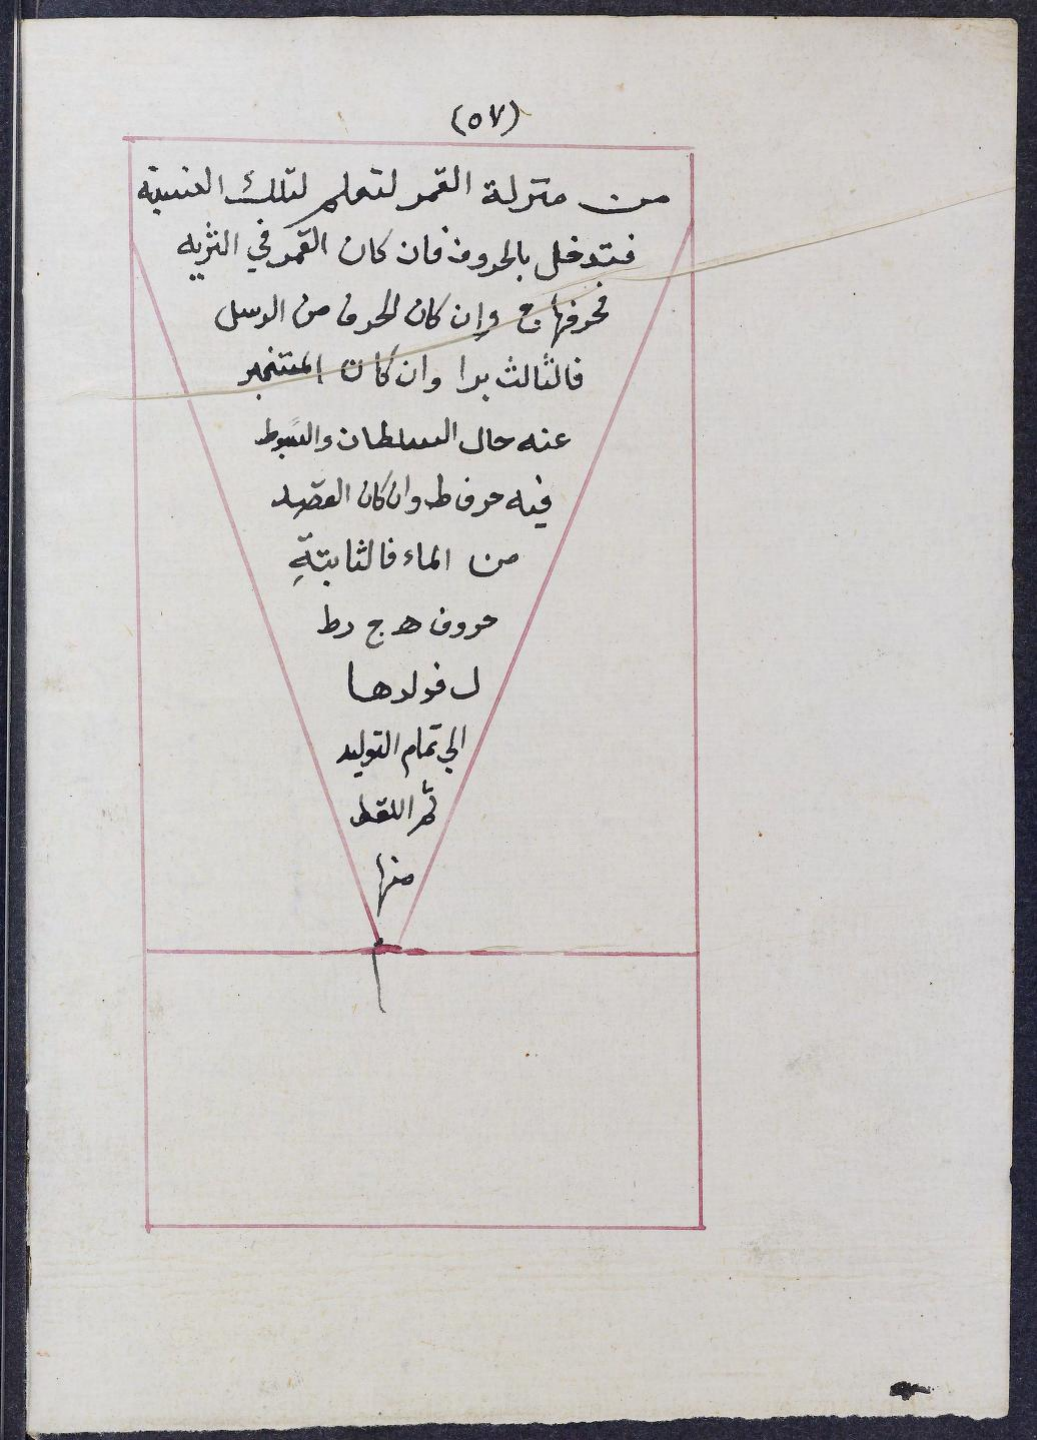 (٥٧)
من منزلة القمر لتعلم لتلك النسبة
فتدخل بالحروف فان كان القمر في الثريه
فحرفها ج وان كان الحرف من الوسل
فالثالث بدا وان كان
عنه حال السلطان
فيه حرف ط وان كان القصد
من الماء فالثابتة
حروف ه ج د ط
ل فولدها
الي تمام التوليد
ثم اللقط
منها
م